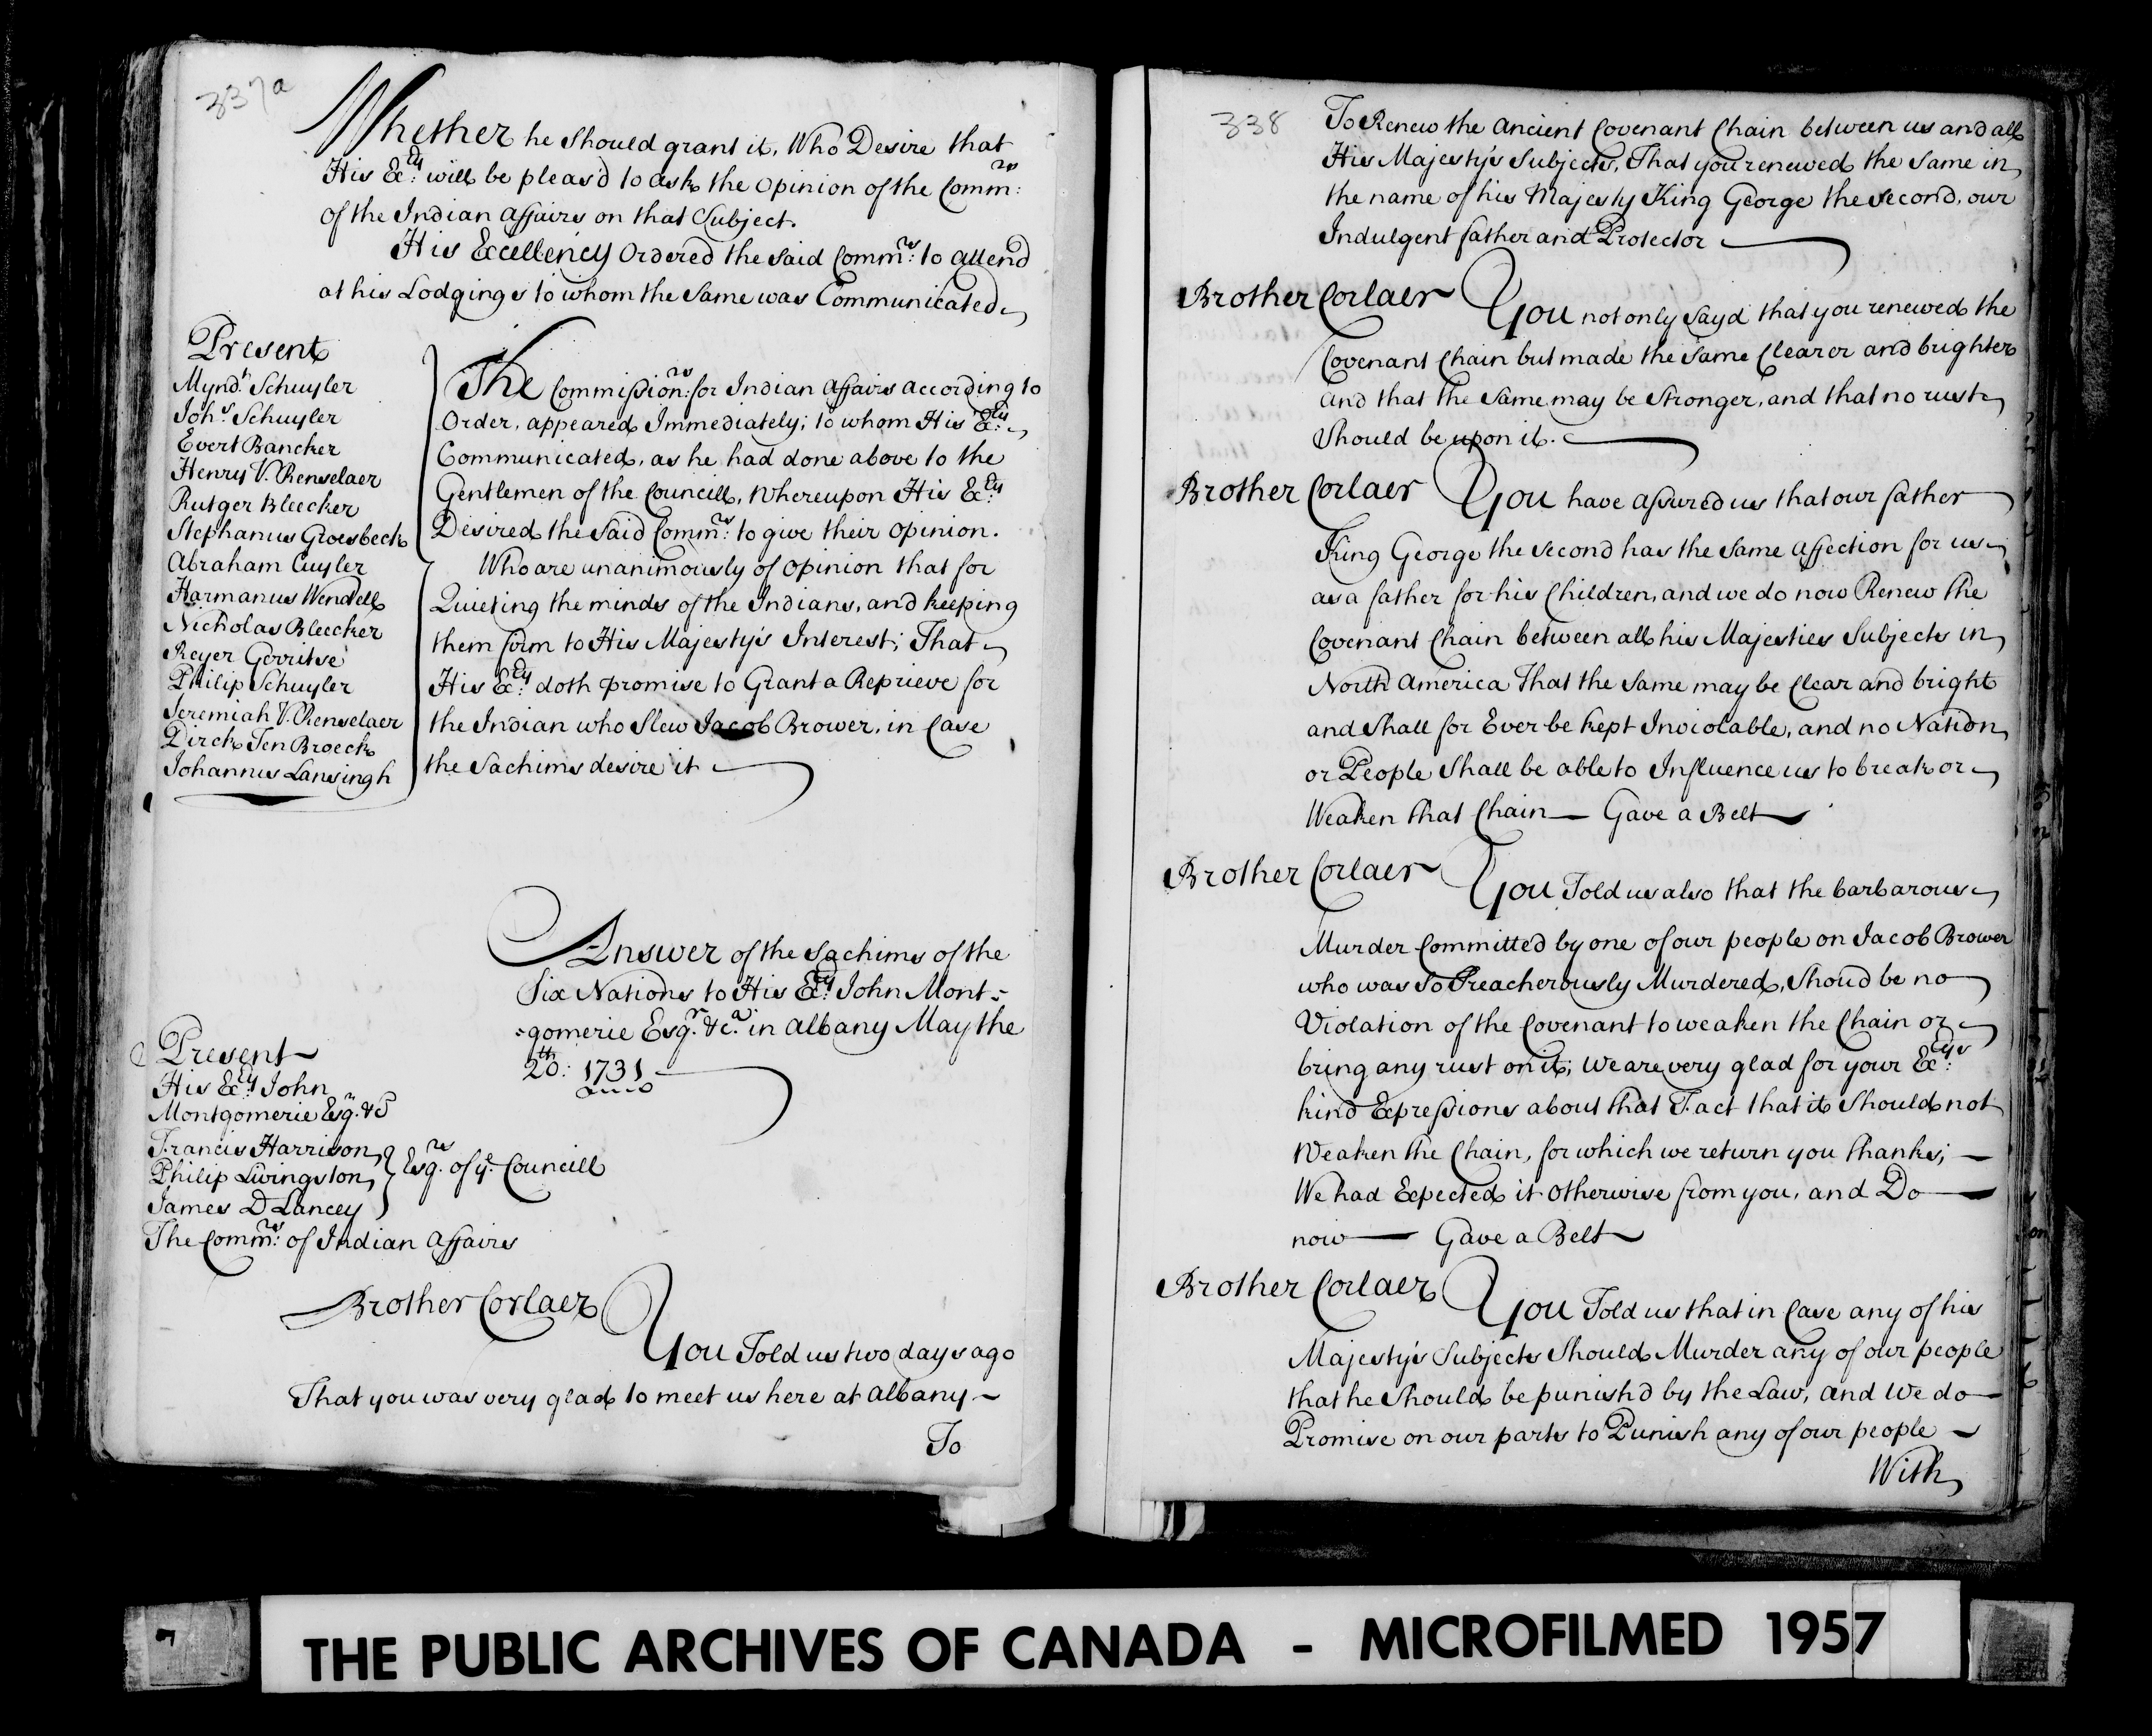 337a
Whether he should grant it, Who Desire that
His Ex:cy will be pleas'd to ask the Opinion of the Comm:rs
of the Indian Affairs on that Subject.
His Excellency Ordered the said Comm:rs to attend
at his Lodgings to whom the Same was Communicated
Present
Mynd:t Schuyler
Joh:s Schuyler
Evert Bancker
Henry V. Renselaer
Rutger Bleecker
Stephanus Groesbeck
Abraham Cuyler
Harmanus Wendell
Nicholas Bleecker
Reyer Gerritse
Philip Schuyler
Jeremiah V. Renselaer
Dirck Ten Broeck
Johannis Lansingh
The Commission:rs for Indian Affairs according to
Order, appeared Immediately; to whom His Ex:cy
Communicated, as he had done above to the
Gentlemen of the Councill, Whereupon His Ex:cy
Desired the Said Comm:rs to give their Opinion.
Who are unanimously of Opinion that for
Quieting the minds of the Indians, and keeping
them firm to His Majesty's Interest; That
His Ex:cy doth promise to Grant a Reprieve for
the Indian who Slew Jacob Brower, in Case
the Sachims desire it
Answer of the Sachims of the
Six Nations to His Ex:cy John Mont=
=gomerie Esq.r &c.a in Albany May the
20:th 1731
Present
His Ex:cy John
Montgomerie Esq.r &c
Francis Harrison
Philip Livingston
James D Lancey
Esq.rs of ye Councill
The Comm:rs of Indian Affairs
Brother Corlaer
You Told us two days ago
That you was very glad to meet us here at Albany
To
338
To Renew the Ancient Covenant Chain between us and all
His Majesty's Subjects, That you renewed the Same in
the name of his Majesty King George the Second, our
Indulgent father and Protector
Brother Corlaer You not only Sayd that you renewed the
Covenant Chain but made the Same Clearer and brighter
and that the Same may be Stronger, and that no rust
Should be upon it.
Brother Corlaer You have assured us that our father
King George the Second has the Same Affection for us
as a father for his Children, and we do now Renew the
Covenant Chain between all his Majesties Subjects in
North America That the Same may be Clear and bright
and Shall for Ever be kept Inviolable, and no Nation
or People Shall be able to Influence us to break or
Weaken that Chain — Gave a Belt
Brother Corlaer You Told us also that the barbarous
Murder Committed by one of our people on Jacob Brower
who was So Treacherously Murdered, Shoud be no
Violation of the Covenant to weaken the Chain or
bring any rust on it; We are very glad for your Ex:cys
kind Expressions about that Fact that it Should not
Weaken the Chain, for which we return you thanks; —
We had Expected it Otherwise from you, and Do
now — Gave a Belt
Brother Corlaer You Told us that in Case any of his
Majesty's Subjects Should Murder any of our people
that he Should be punish'd by the Law, and We do
Promise on our parts to Punish any of our people
With
THE PUBLIC ARCHIVES OF CANADA - MICROFILMED 1957